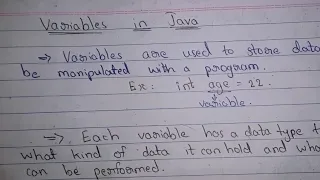 Variables in Java
⇒ Variables are used to store data
be manipulated with a program.
Ex: int age = 22.
variable.
⇒ Each variable has a data type t
what kind of data it can hold and wh
can be performed.